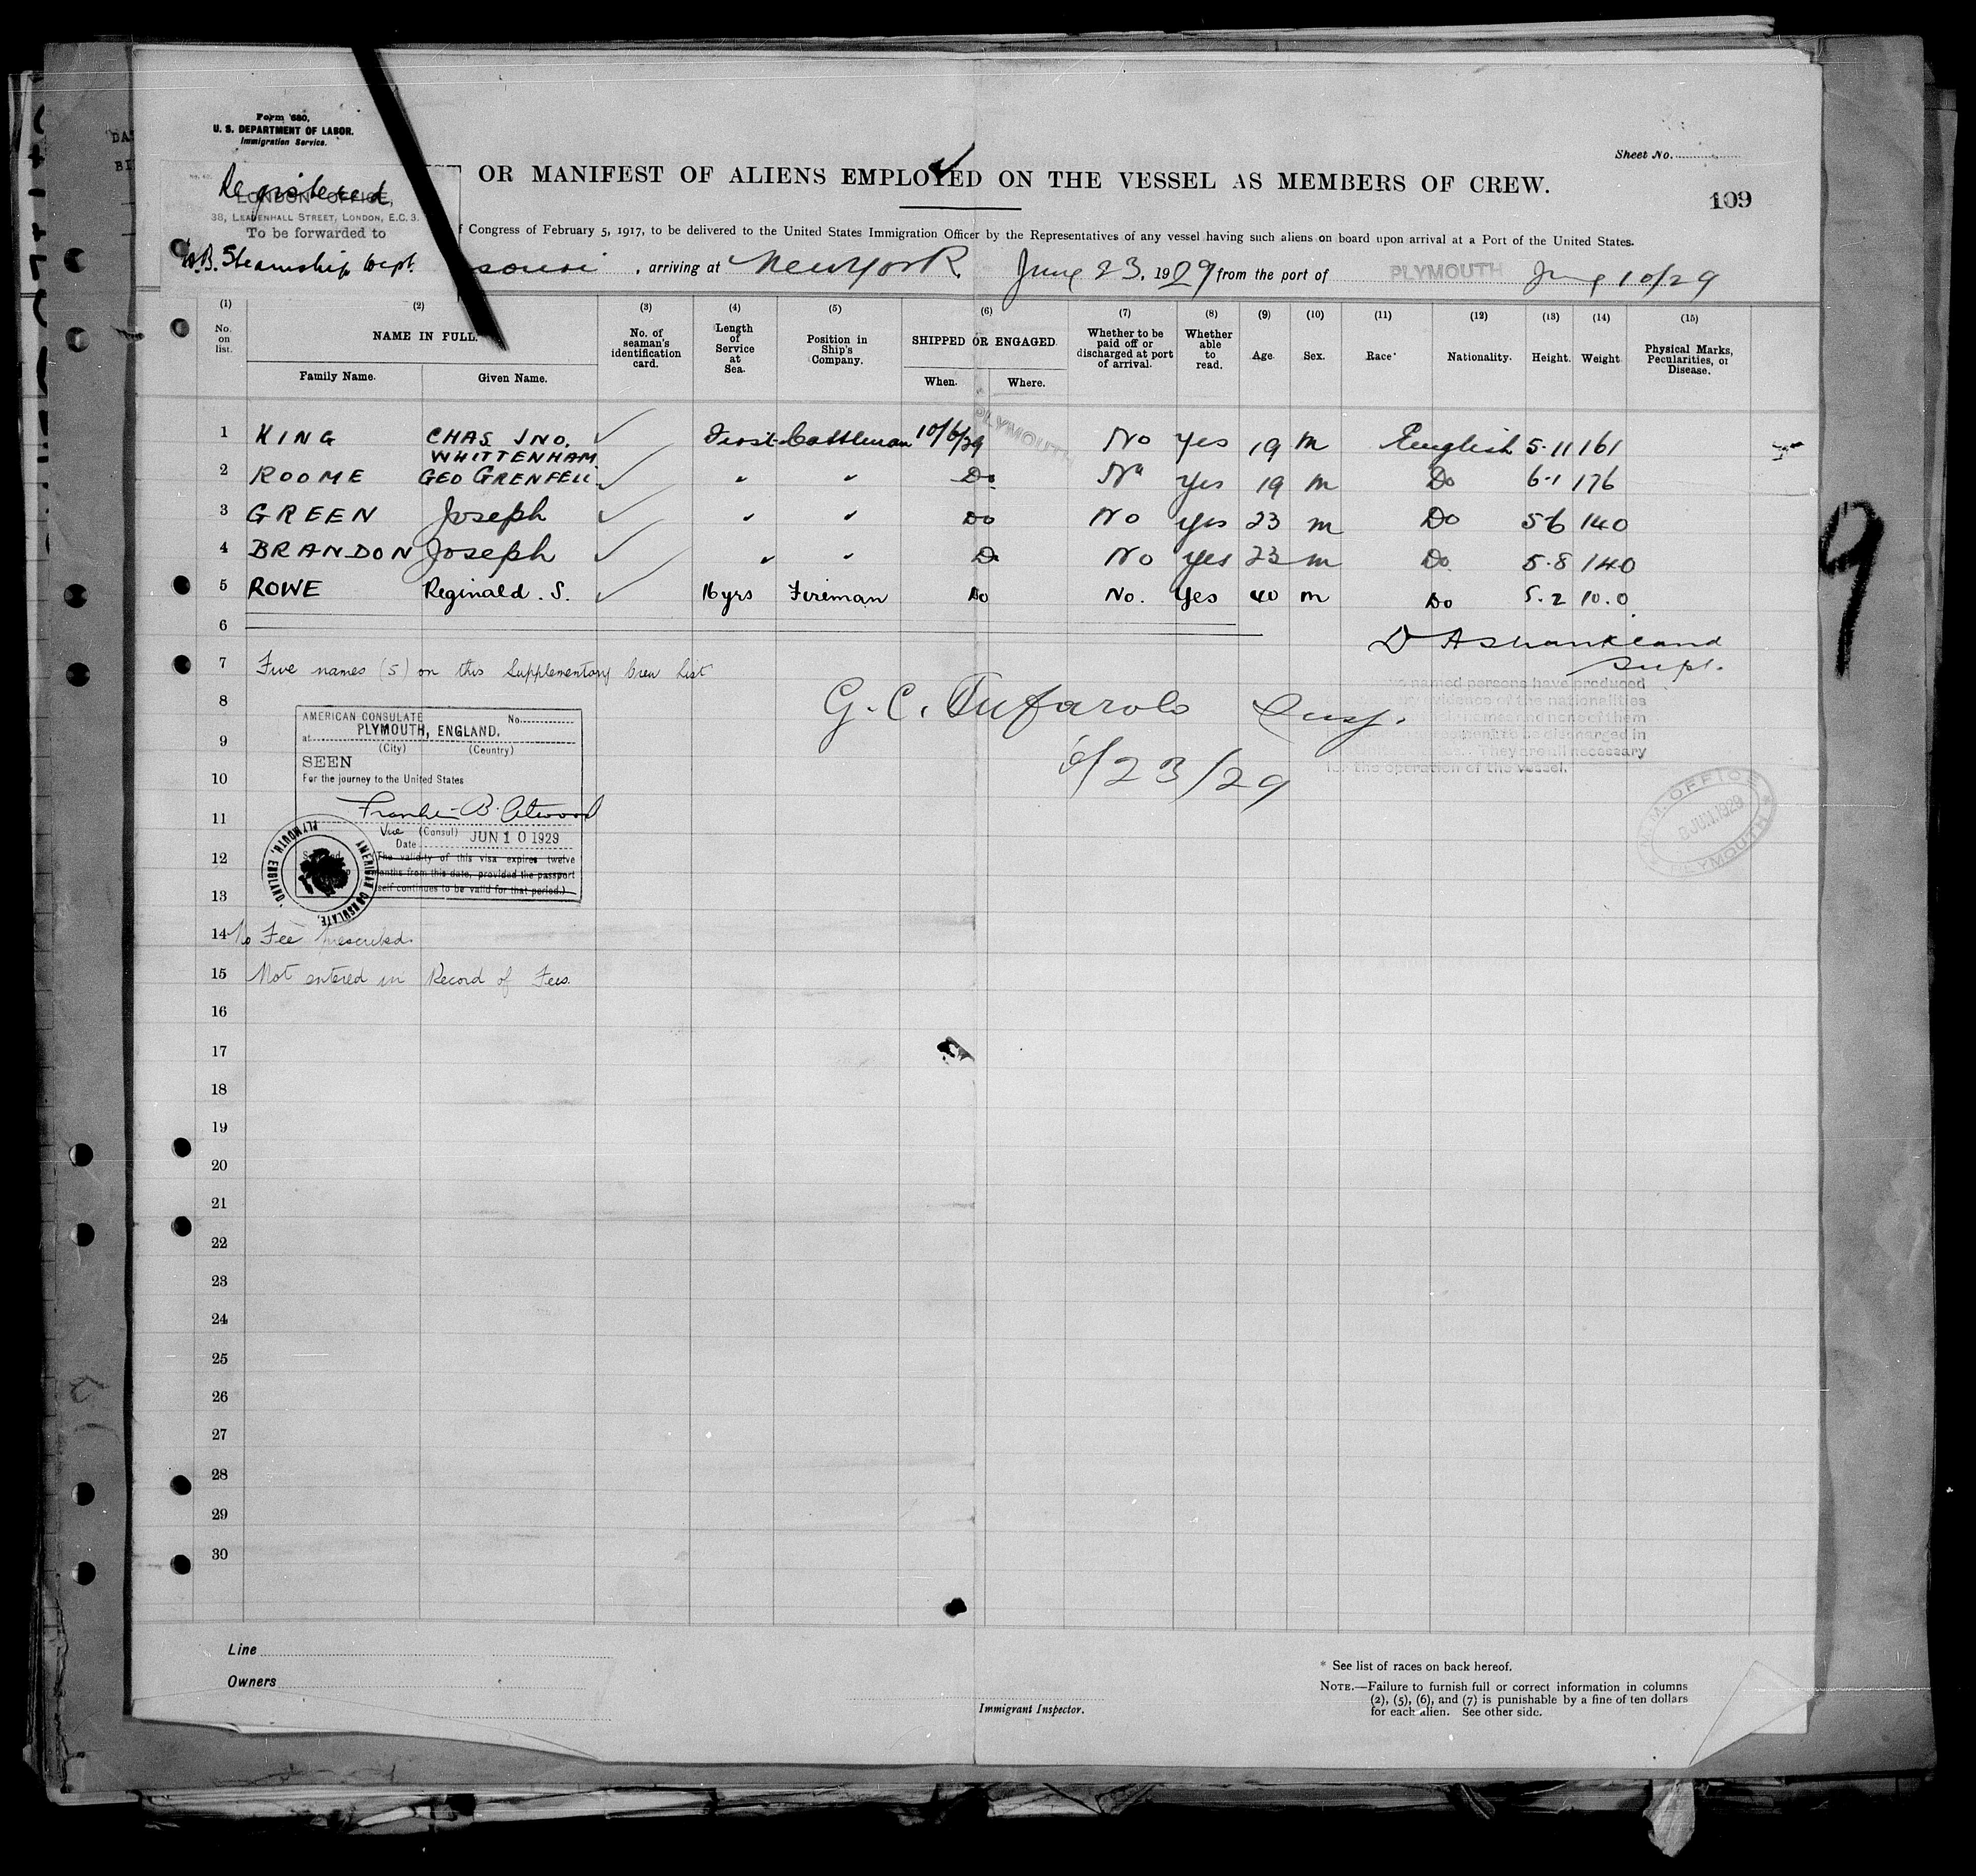 Form 680,
U. S. DEPARTMENT OF LABOR.
Immigration Service.
Sheet No.
OR MANIFEST OF ALIENS EMPLOYED ON THE VESSEL AS MEMBERS OF CREW.
109
Registered
LONDON OFFICE,
38, LEADENHALL STREET, LONDON, E.C. 3.
To be forwarded to
Steamship Dept.
f Congress of February 5, 1917, to be delivered to the United States Immigration Officer by the Representatives of any vessel having such aliens on board upon arrival at a Port of the United States.
souri , arriving at New York June 23, 1929 from the port of PLYMOUTH June 10/29
(1) (2) (3) (4) (5) (6) (7) (8) (9) (10) (11) (12) (13) (14) (15)
No. on list. NAME IN FULL. No. of seaman's identification card. Length of Service at Sea. Position in Ship's Company. SHIPPED OR ENGAGED Whether to be paid off or discharged at port of arrival. Whether able to read. Age. Sex. Race* Nationality. Height. Weight. Physical Marks, Pecularities, or Disease.
Family Name. Given Name. When. Where.
PLYMOUTH
1 KING CHAS JNO. WHITTENHAM First Cattleman 10/6/29 No Yes 19 M English 5.11 161
2 ROOME GEO GRENFELL " " Do No Yes 19 M Do 6.1 176
3 GREEN Joseph " " Do No Yes 23 M Do 5.6 140
4 BRANDON Joseph " " Do No Yes 23 M Do 5.8 140
5 ROWE Reginald . S. 16 yrs Fireman Do No. Yes 40 M Do 5.2 10.0
6
Supt.
7 Five names (5) on this Supplementary Crew List
named persons have produced
evidence of the nationalities
names and none of them
to be discharged in
They are all necessary
for the operation of the vessel.
8 G. C. Insp.
9
6/23/29
AMERICAN CONSULATE No.
at PLYMOUTH, ENGLAND.
(City) (Country)
SEEN
For the journey to the United States
Franklin B. Atwood
Vice (Consul)
Date JUN 10 1929
The validity of this visa expires twelve
months from this date, provided the passport
self continues to be valid for that period.)
AMERICAN CONSULATE, PLYMOUTH, ENGLAND.
M.M. OFFICE
JUN. 1929
PLYMOUTH
10
11
12
13
14 No Fee prescribed.
15 Not entered in Record of Fees.
16
17
18
19
20
21
22
23
24
25
26
27
28
29
30
9
Line
Owners
Immigrant Inspector.
* See list of races on back hereof.
NOTE.—Failure to furnish full or correct information in columns
(2), (5), (6), and (7) is punishable by a fine of ten dollars
for each alien. See other side.